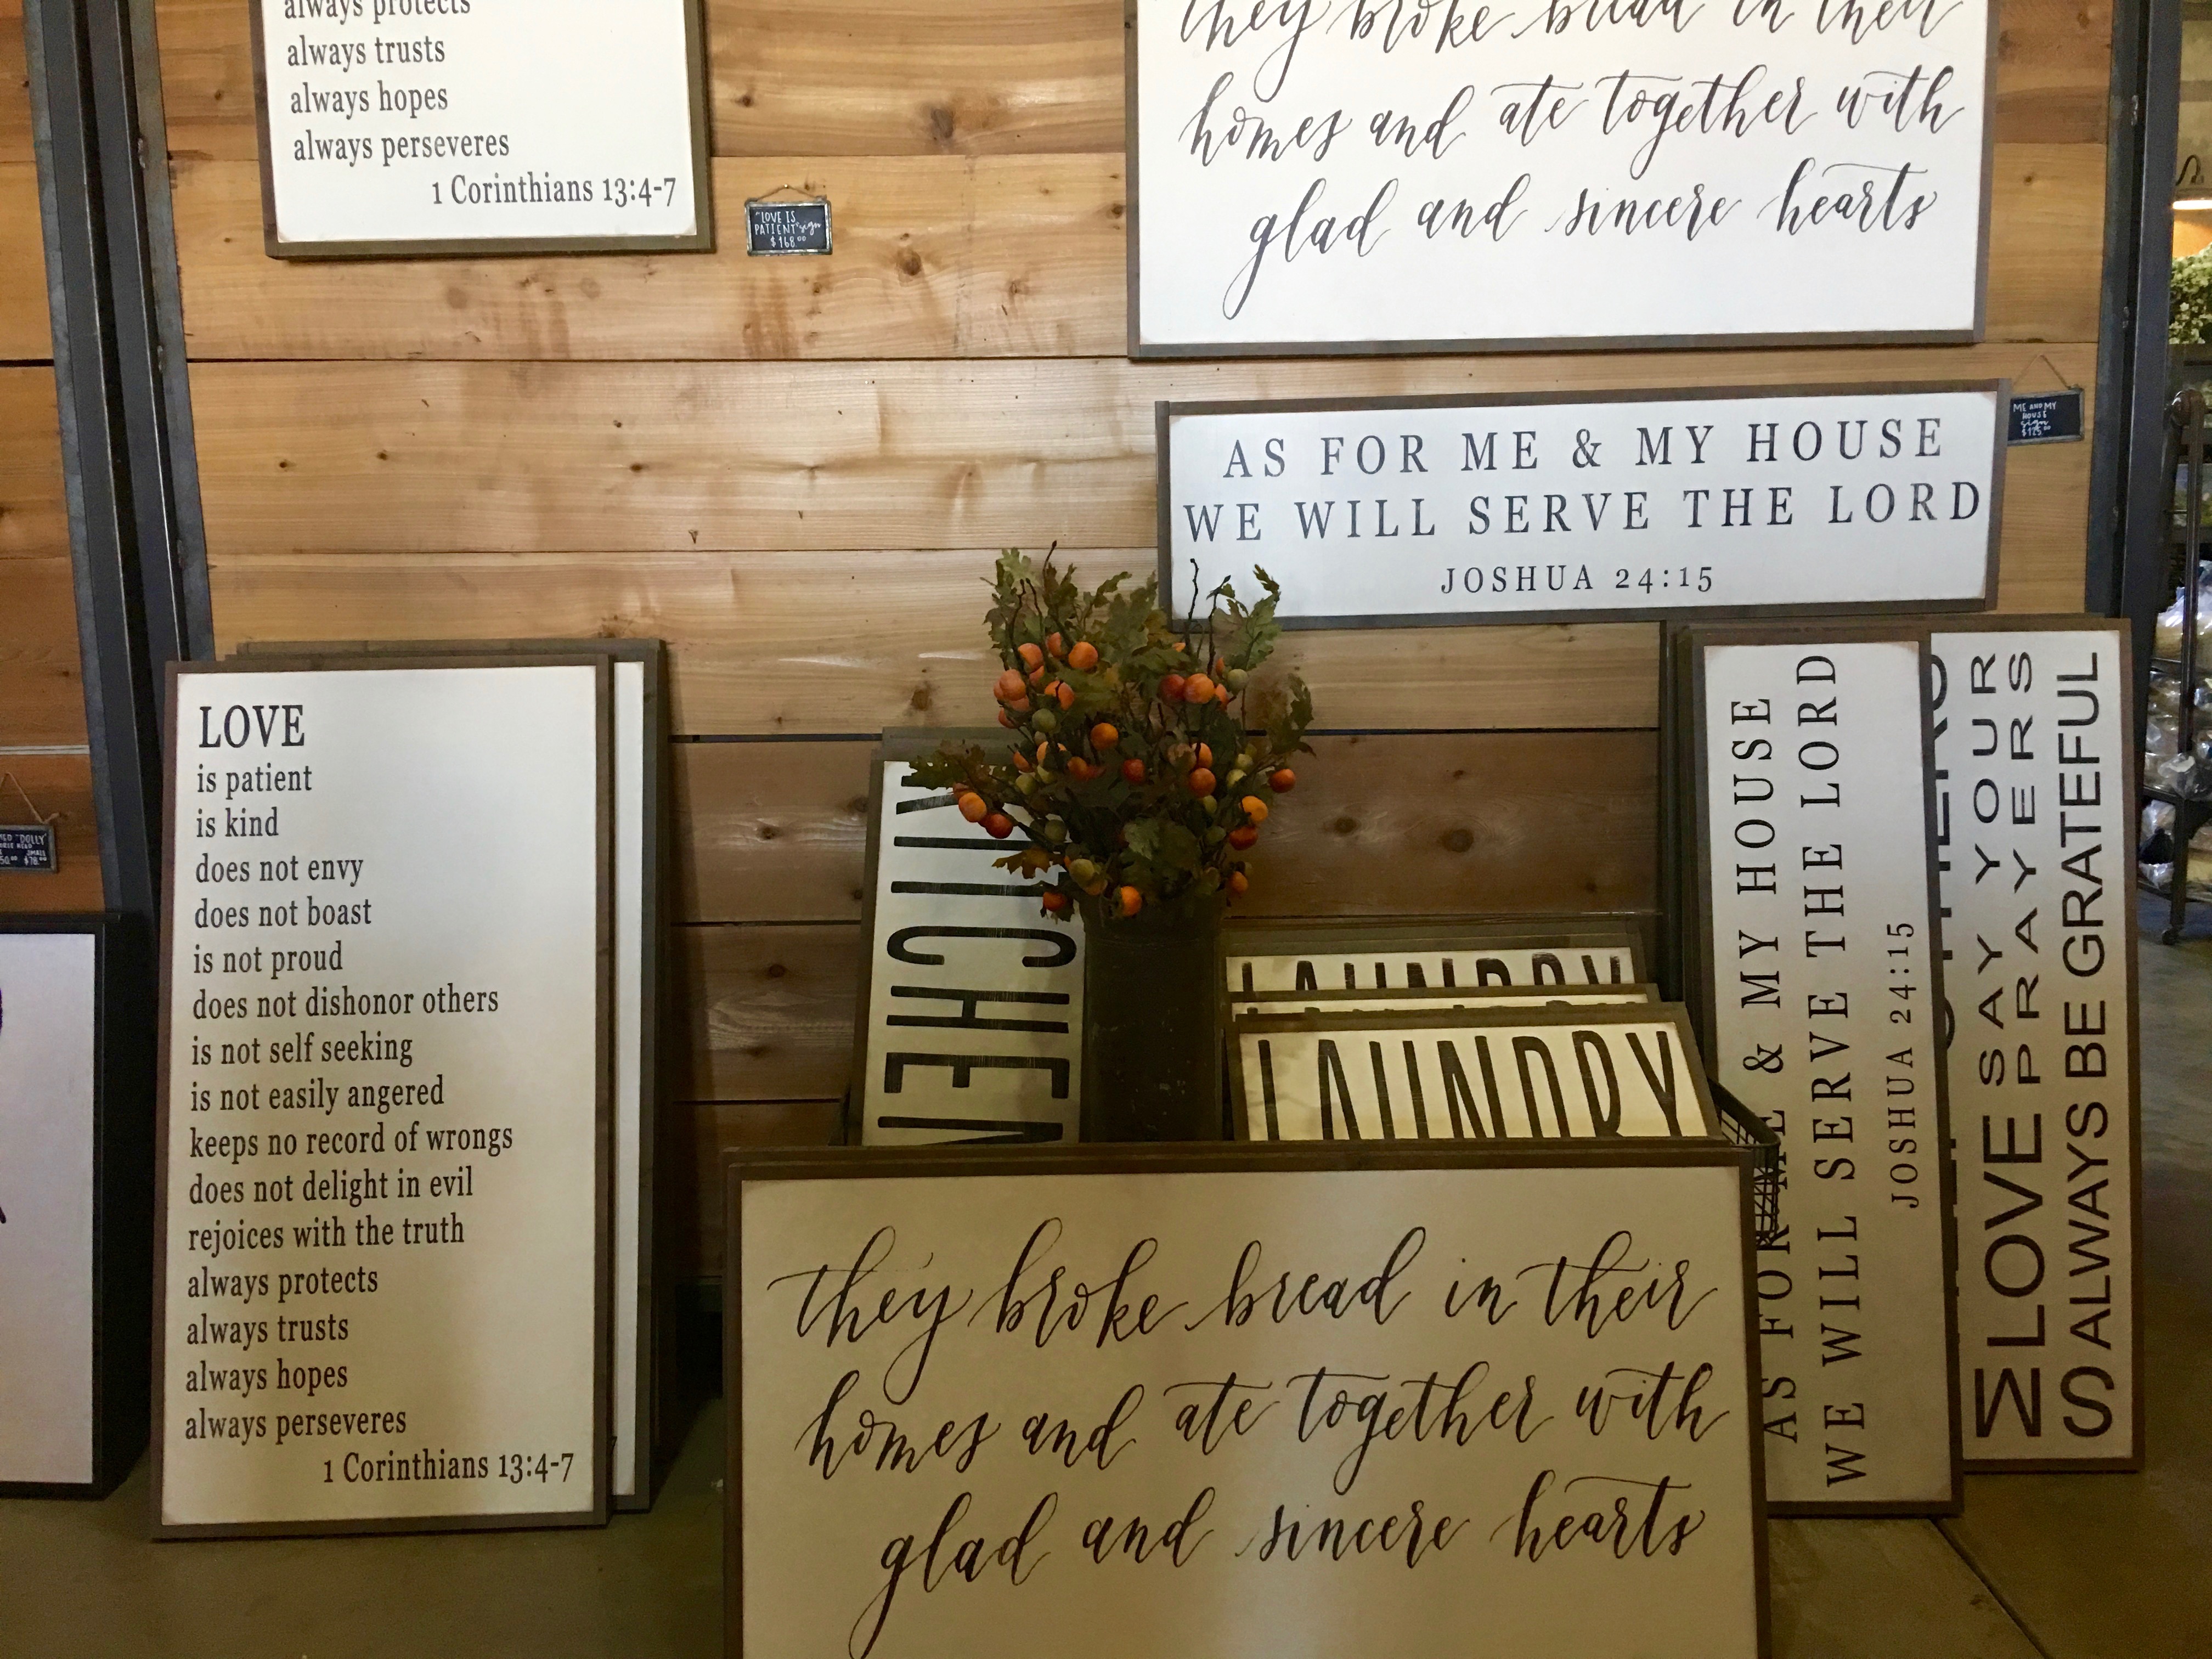 always protects
always trusts
always hopes
always perseveres
1 Corinthians 13:4-7
"LOVE IS
PATIENT" sign
$168.00
they broke bread in their
homes and ate together with
glad and sincere hearts
AS FOR ME & MY HOUSE
WE WILL SERVE THE LORD
JOSHUA 24:15
ME AND MY
HOUSE
sign
$125.00
LOVE
is patient
is kind
does not envy
does not boast
is not proud
does not dishonor others
is not self seeking
is not easily angered
keeps no record of wrongs
does not delight in evil
rejoices with the truth
always protects
always trusts
always hopes
always perseveres
1 Corinthians 13:4-7
"DOLLY"
SMALL
$78.00
KITCHEN
LAUNDRY
LAUNDRY
LAUNDRY
they broke bread in their
homes and ate together with
glad and sincere hearts
AS FOR ME & MY HOUSE
WE WILL SERVE THE LORD
JOSHUA 24:15
LOVE SAY YOUR
PRAYERS
ALWAYS BE GRATEFUL